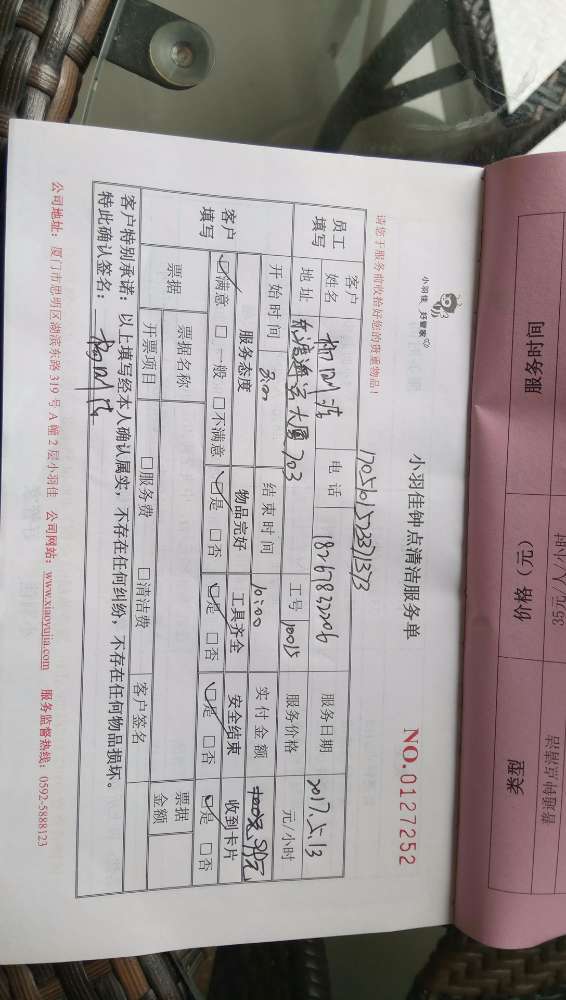 小羽佳 好管家
小羽佳钟点清洁服务单
NO.0127252
请您于服务前收捡好您的贵重物品!
17051015723711373
员工填写
客户姓名
电话
18267832206
服务日期
2017.5.13
地址
大厦703
工号
10015
服务价格
元/小时
开始时间
结束时间
10:00
实付金额
客户填写
服务态度
物品完好
工具齐全
安全结束
收到卡片
☑满意 □一般 □不满意
☑是 □否
☑是 □否
☑是 □否
☑是 □否
票据
票据名称
□服务费
□清洁费
票据金额
开票项目
客户签名
客户特别承诺:以上填写经本人确认属实,不存在任何纠纷,不存在任何物品损坏。
特此确认签名:
公司地址:厦门市思明区湖滨东路319号A幢2层小羽佳 公司网站:www.xiaoyujia.com 服务监督热线:0592-5888123
服务时间
价格(元)
类型
35元/人/小时
普通钟点清洁